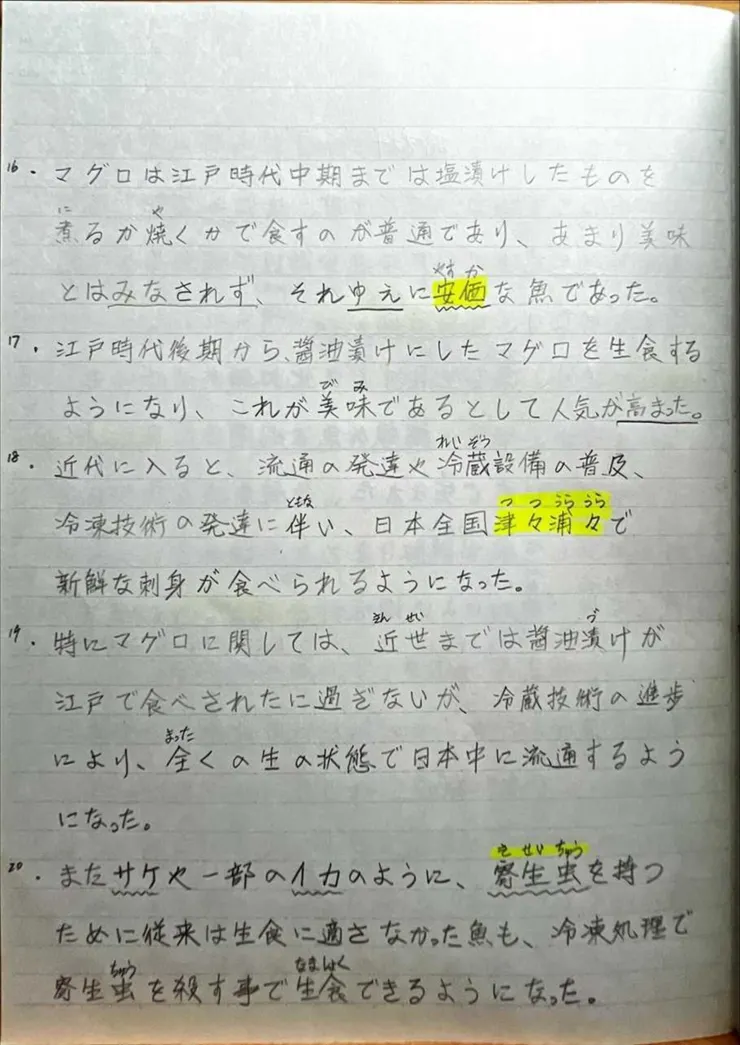 16. マグロは江戸時代中期までは塩漬けしたものを
に や
煮るか焼くかで食すのが普通であり、あまり美味
やす か
とはみなされず、それゆえに安価な魚であった。
17. 江戸時代後期から、醤油漬けにしたマグロを生食する
び み
ようになり、これが美味であるとして人気が高まった。
れい ぞう
18. 近代に入ると、流通の発達や冷蔵設備の普及、
ともな つ つ うら うら
冷凍技術の発達に伴い、日本全国津々浦々で
新鮮な刺身が食べられるようになった。
きん せい づ
19. 特にマグロに関しては、近世までは醤油漬けが
江戸で食べされたに過ぎないが、冷蔵技術の進歩
まった
により、全くの生の状態で日本中に流通するよう
になった。
き せい ちゅう
20. またサケや一部のイカのように、寄生虫を持つ
ために従来は生食に適さなかった魚も、冷凍処理で
ちゅう なましょく
寄生虫を殺す事で生食できるようになった。